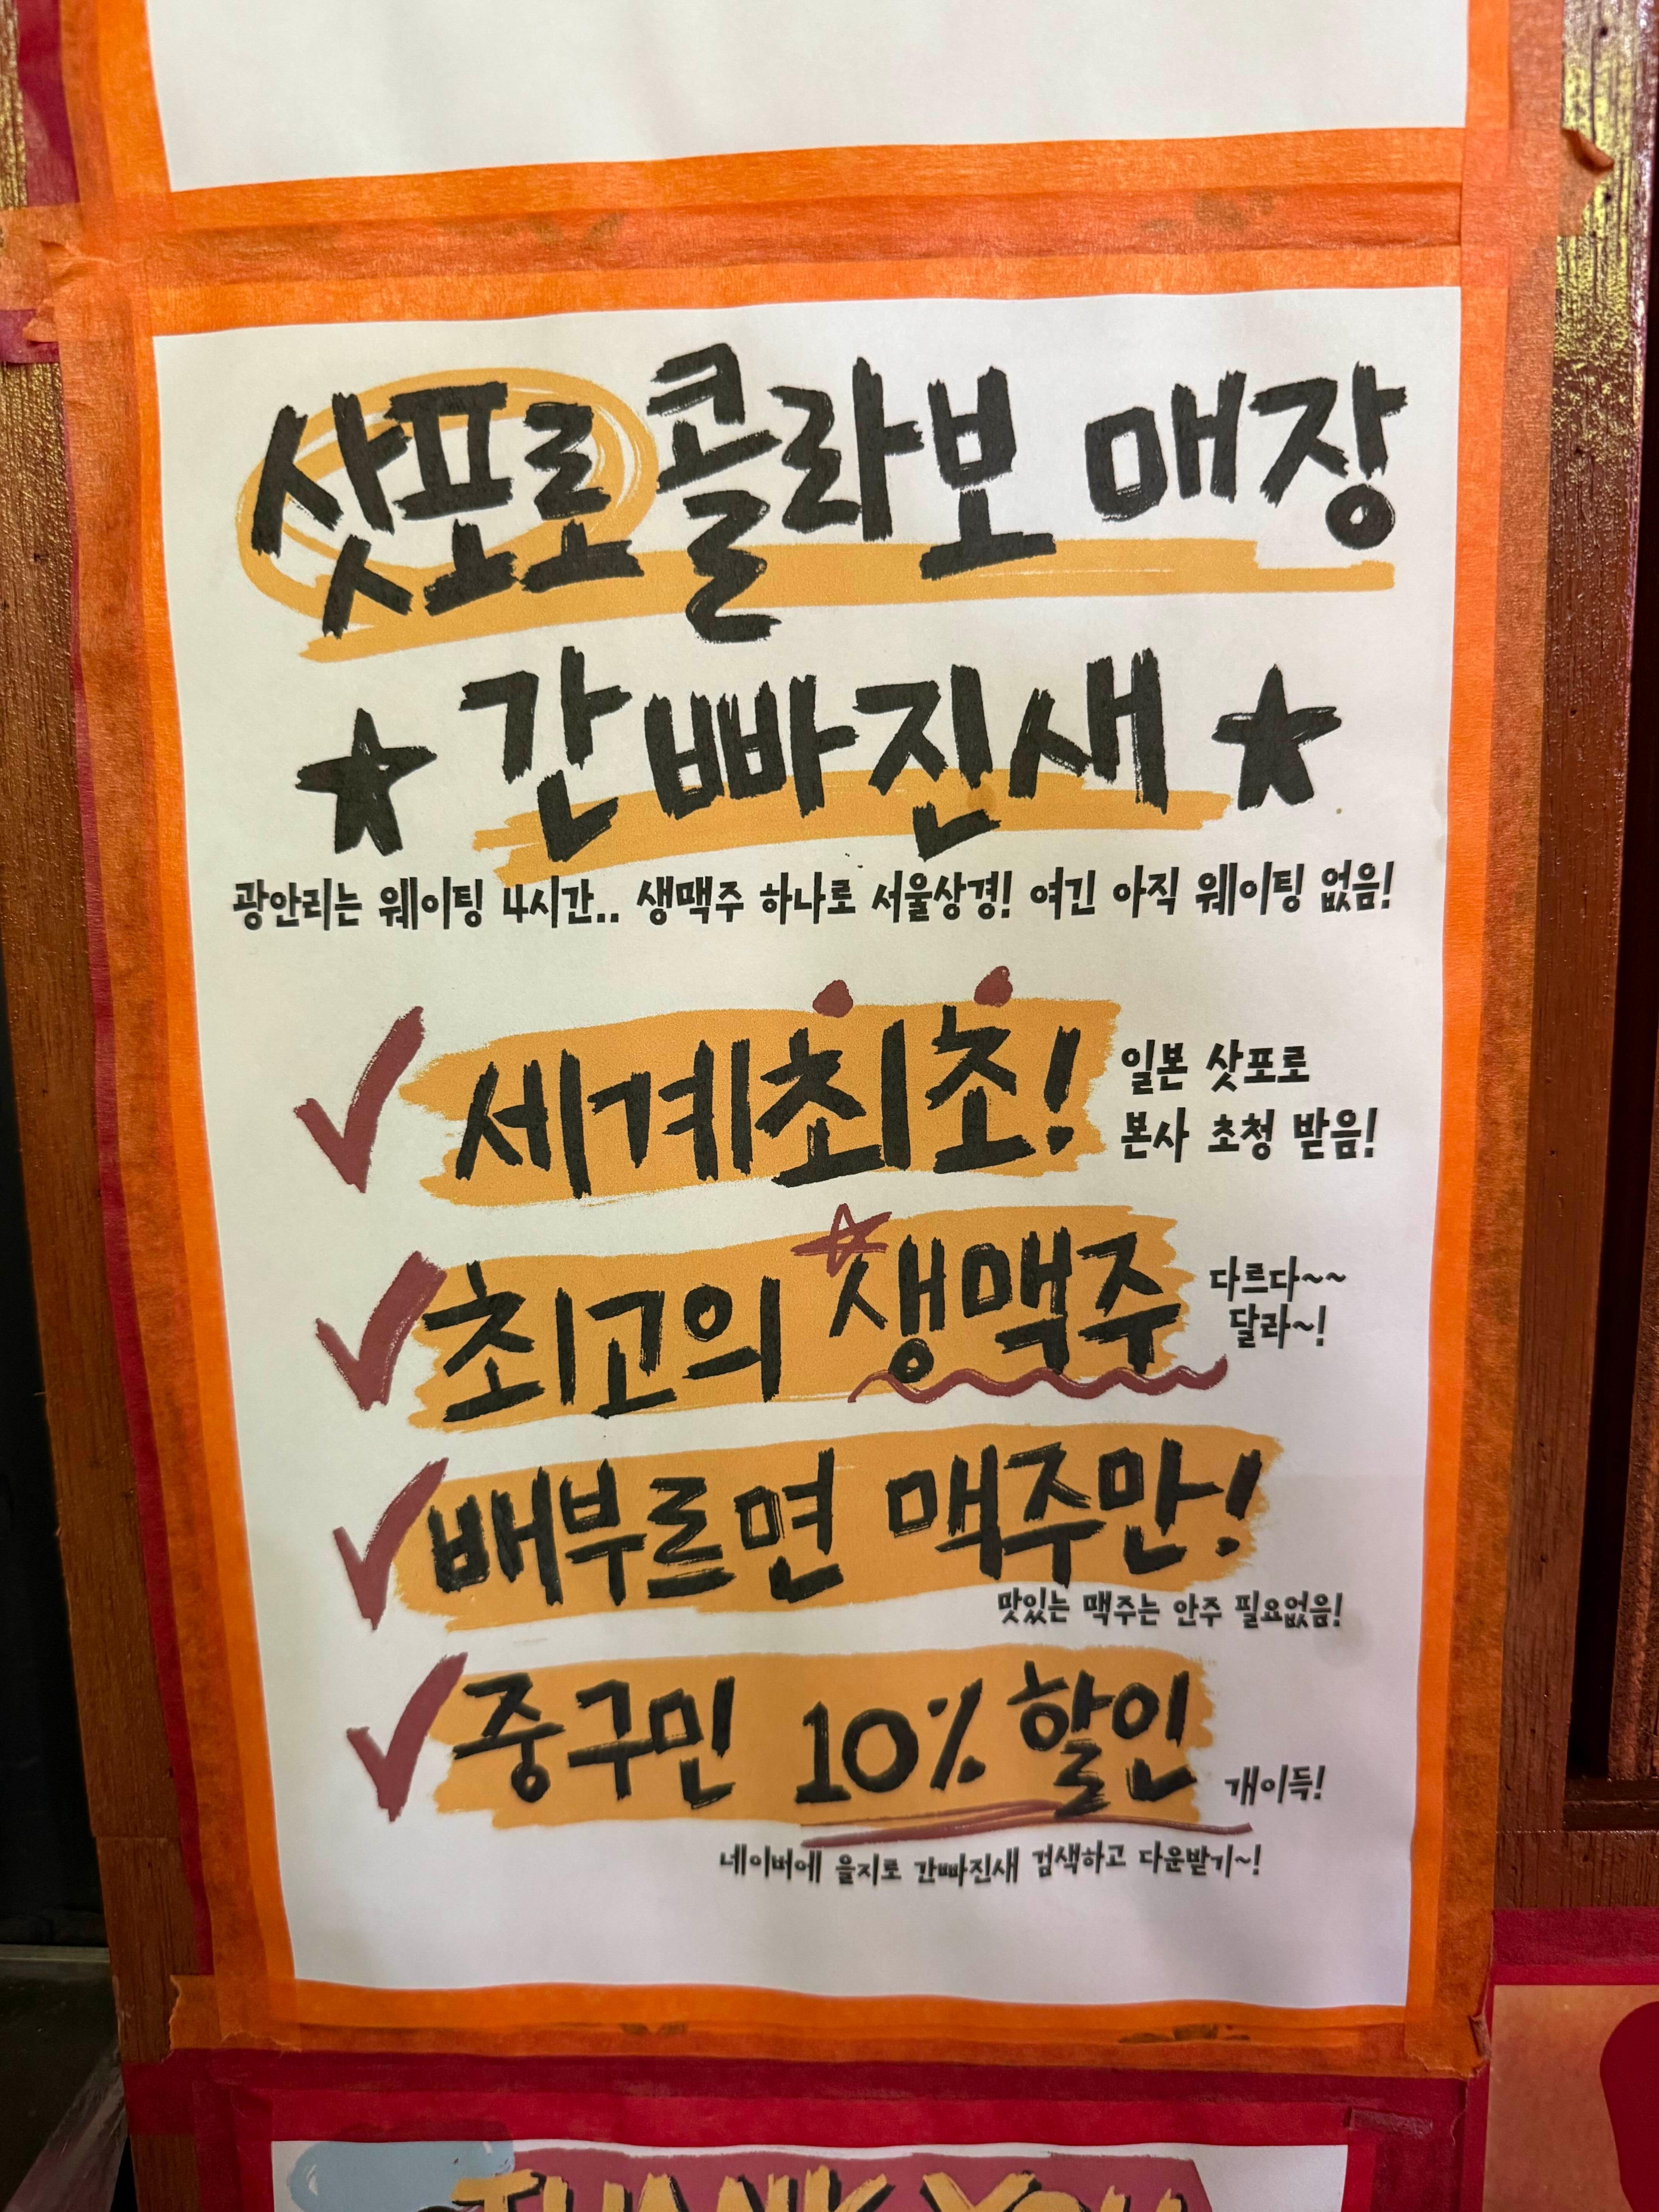 삿포로 콜라보 매장
★ 간빠진새 ★
광안리는 웨이팅 4시간.. 생맥주 하나로 서울상경! 여긴 아직 웨이팅 없음!
세계최초! 일본 삿포로
본사 초청 받음!
최고의 생맥주 다르다~~
달라~!
배부르면 맥주만!
맛있는 맥주는 안주 필요없음!
중구민 10% 할인 개이득!
네이버에 을지로 간빠진새 검색하고 다운받기~!
THANK YOU